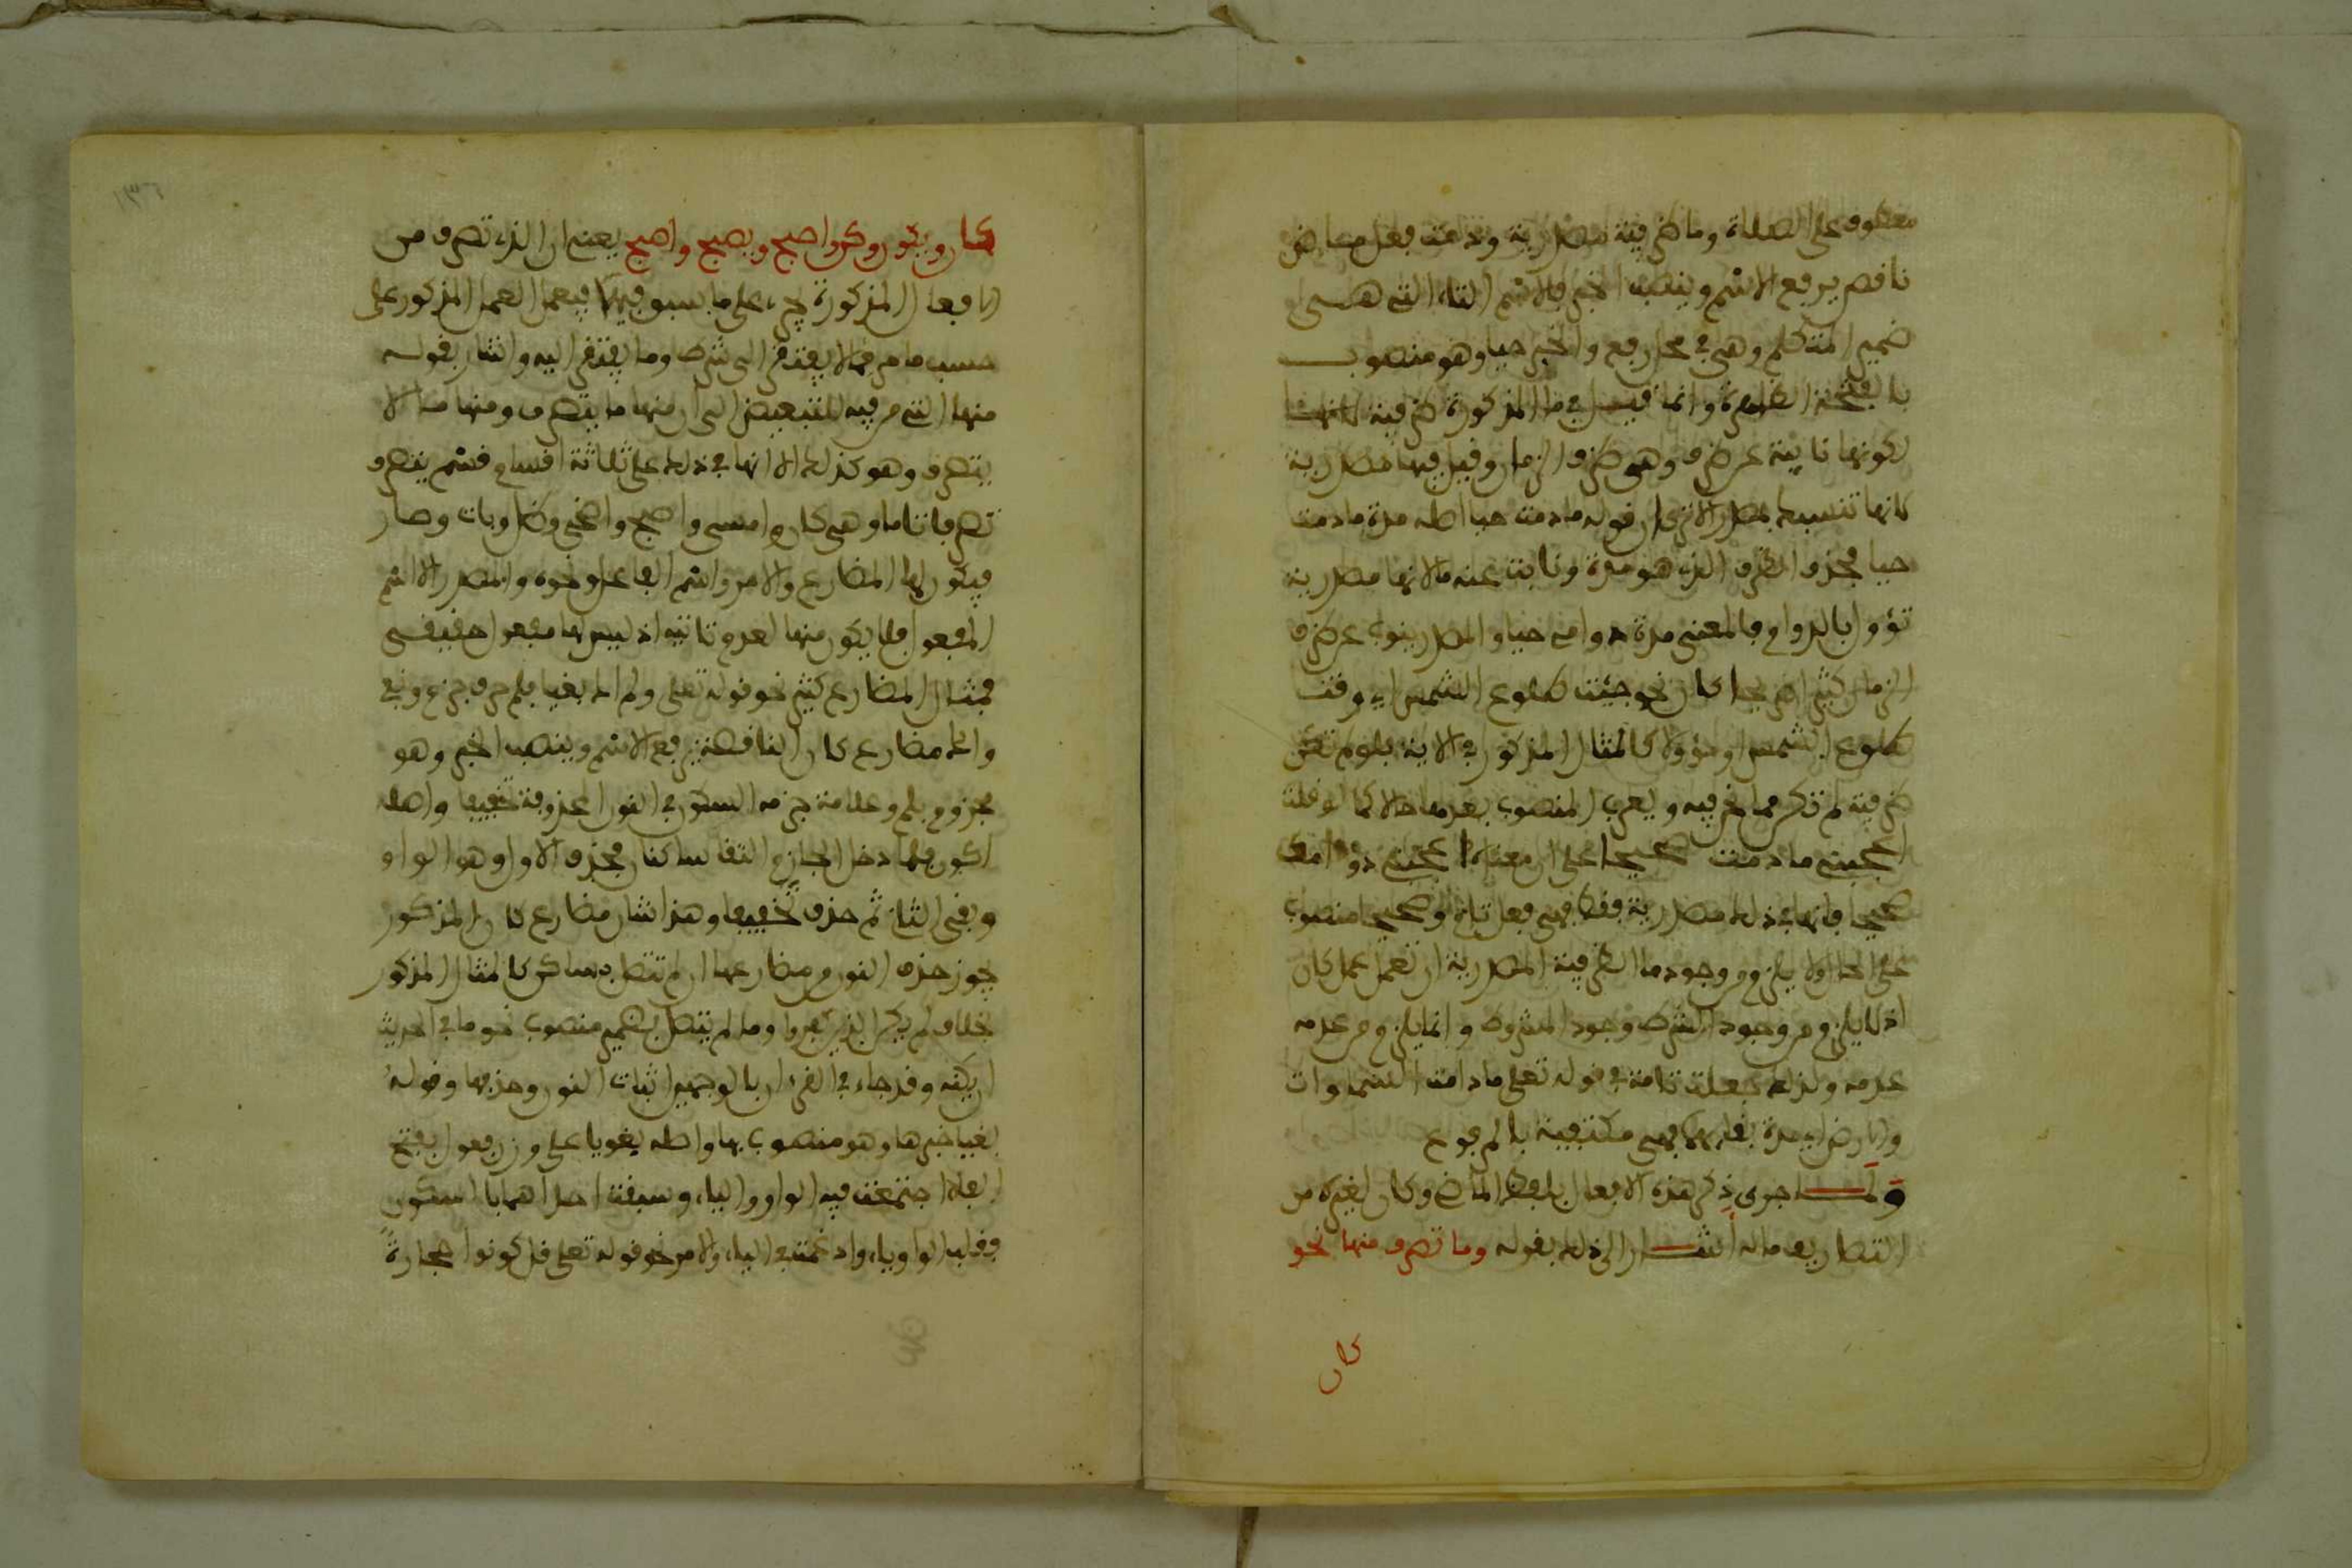 معطوف على الصلاة وما ظرفية مصدرية ودمت فعل ماض
ناقص يرفع الاسم وينصب الخبر فالاسم التاء التي هي
ضمير المتكلم وهي في محل رفع والخبر حيا وهو منصوب
بالفتحة الظاهرة وانما قيل في ما المذكورة ظرفية
لكونها نايبة عن ظرف وهي ظرف الزمان وقيل فيها مصدرية
كانها تنسبك بمصدر الا ترى ان قوله ما دمت حيا اصله مدة ما دمت
حيا فحذف الظرف الذي هو مدة ونابت عنه ما لانها مصدرية
تؤول بالدوام فالمعنى مدة دوامي حيا والمصدر ينوب عن ظرف
الزمان كثيرا صريحا كان نحو جئت طلوع الشمس اي وقت
طلوع الشمس او مؤولا كالمثال المذكور في الاية فلو لم تكن
ظرفية لم تكن مما نحن فيه ويعرب المنصوب بعدها حالا كما لو قلت
اعجبني ما دمت صحيحا على ان معناه اعجبني دوامك
صحيحا فانها في ذلك مصدرية فقط فهي فعل تام وصحيحا منصوب
على الحال ولا يلزم من وجود ما الظرفية المصدرية ان تعمل عمل كان
اذ لا يلزم من وجود الشرط وجود المشروط وانما يلزم من عدمه
عدمه ولذلك جعلت تامة في قوله تعلى ما دامت السماوات
والارض اي مدة بقائهما فهي مكتفية بالمرفوع
ولما جرى ذكر هذه الافعال بلفظ الماضي وكان لغيره من
التصاريف ما له اشار الى ذلك بقوله وما تصرف منها نحو
كان
كان ويكون وكن واصبح ويصبح واصبح يعني ان الذي تصرف من
الافعال المذكورة يجري على ما سبق فيها فيعمل العمل المذكور على
حسب ما مر فما لا يفتقر الى شرط وما يفتقر اليه واشار بقوله
منها التي من فيه للتبعيض الى ان منها ما يتصرف ومنها ما لا
يتصرف وهو كذلك الا انها في ذلك على ثلاثة اقسام قسم يتصرف
تصرفا تاما وهي كان وامسى واصبح واضحى وظل وبات وصار
فيكون لها المضارع والامر واسم الفاعل ونحوه والمصدر الا اسم
المفعول فلا يكون منها لعدم تاتيه اذ ليس لها مفعول حقيقي
فمثال المضارع كثير نحو قوله تعلى ولم اك بغيا فلم حرف جزم ونفي
واك مضارع كان الناقصة يرفع الاسم وينصب الخبر وهو
مجزوم بلم وعلامة جزمه السكون في النون المحذوفة تخفيفا واصله
اكون فلما دخل الجازم التقا ساكنان فحذف الاول وهو الواو
وبقي الثاني ثم حذف تخفيفا وهذا شان مضارع كان المذكور
يجوز حذف النون من مضارعها ان لم تتصل بساكن كالمثال المذكور
بخلاف لم يكن الذين كفروا وما لم يتصل بضمير منصوب نحو ما في الحديث
ان يكنه وقد جاء في القرءان بالوجهين اثبات النون وحذفها وقوله
بغيا خبرها وهو منصوب بها واصله بغويا على وزن فعول بفتح
الفاء اجتمعت فيه الواو والياء وسبقت احداهما بالسكون
وقلبت الواو ياء وادغمت في الياء والامر نحو قوله تعلى قل كونوا حجارة